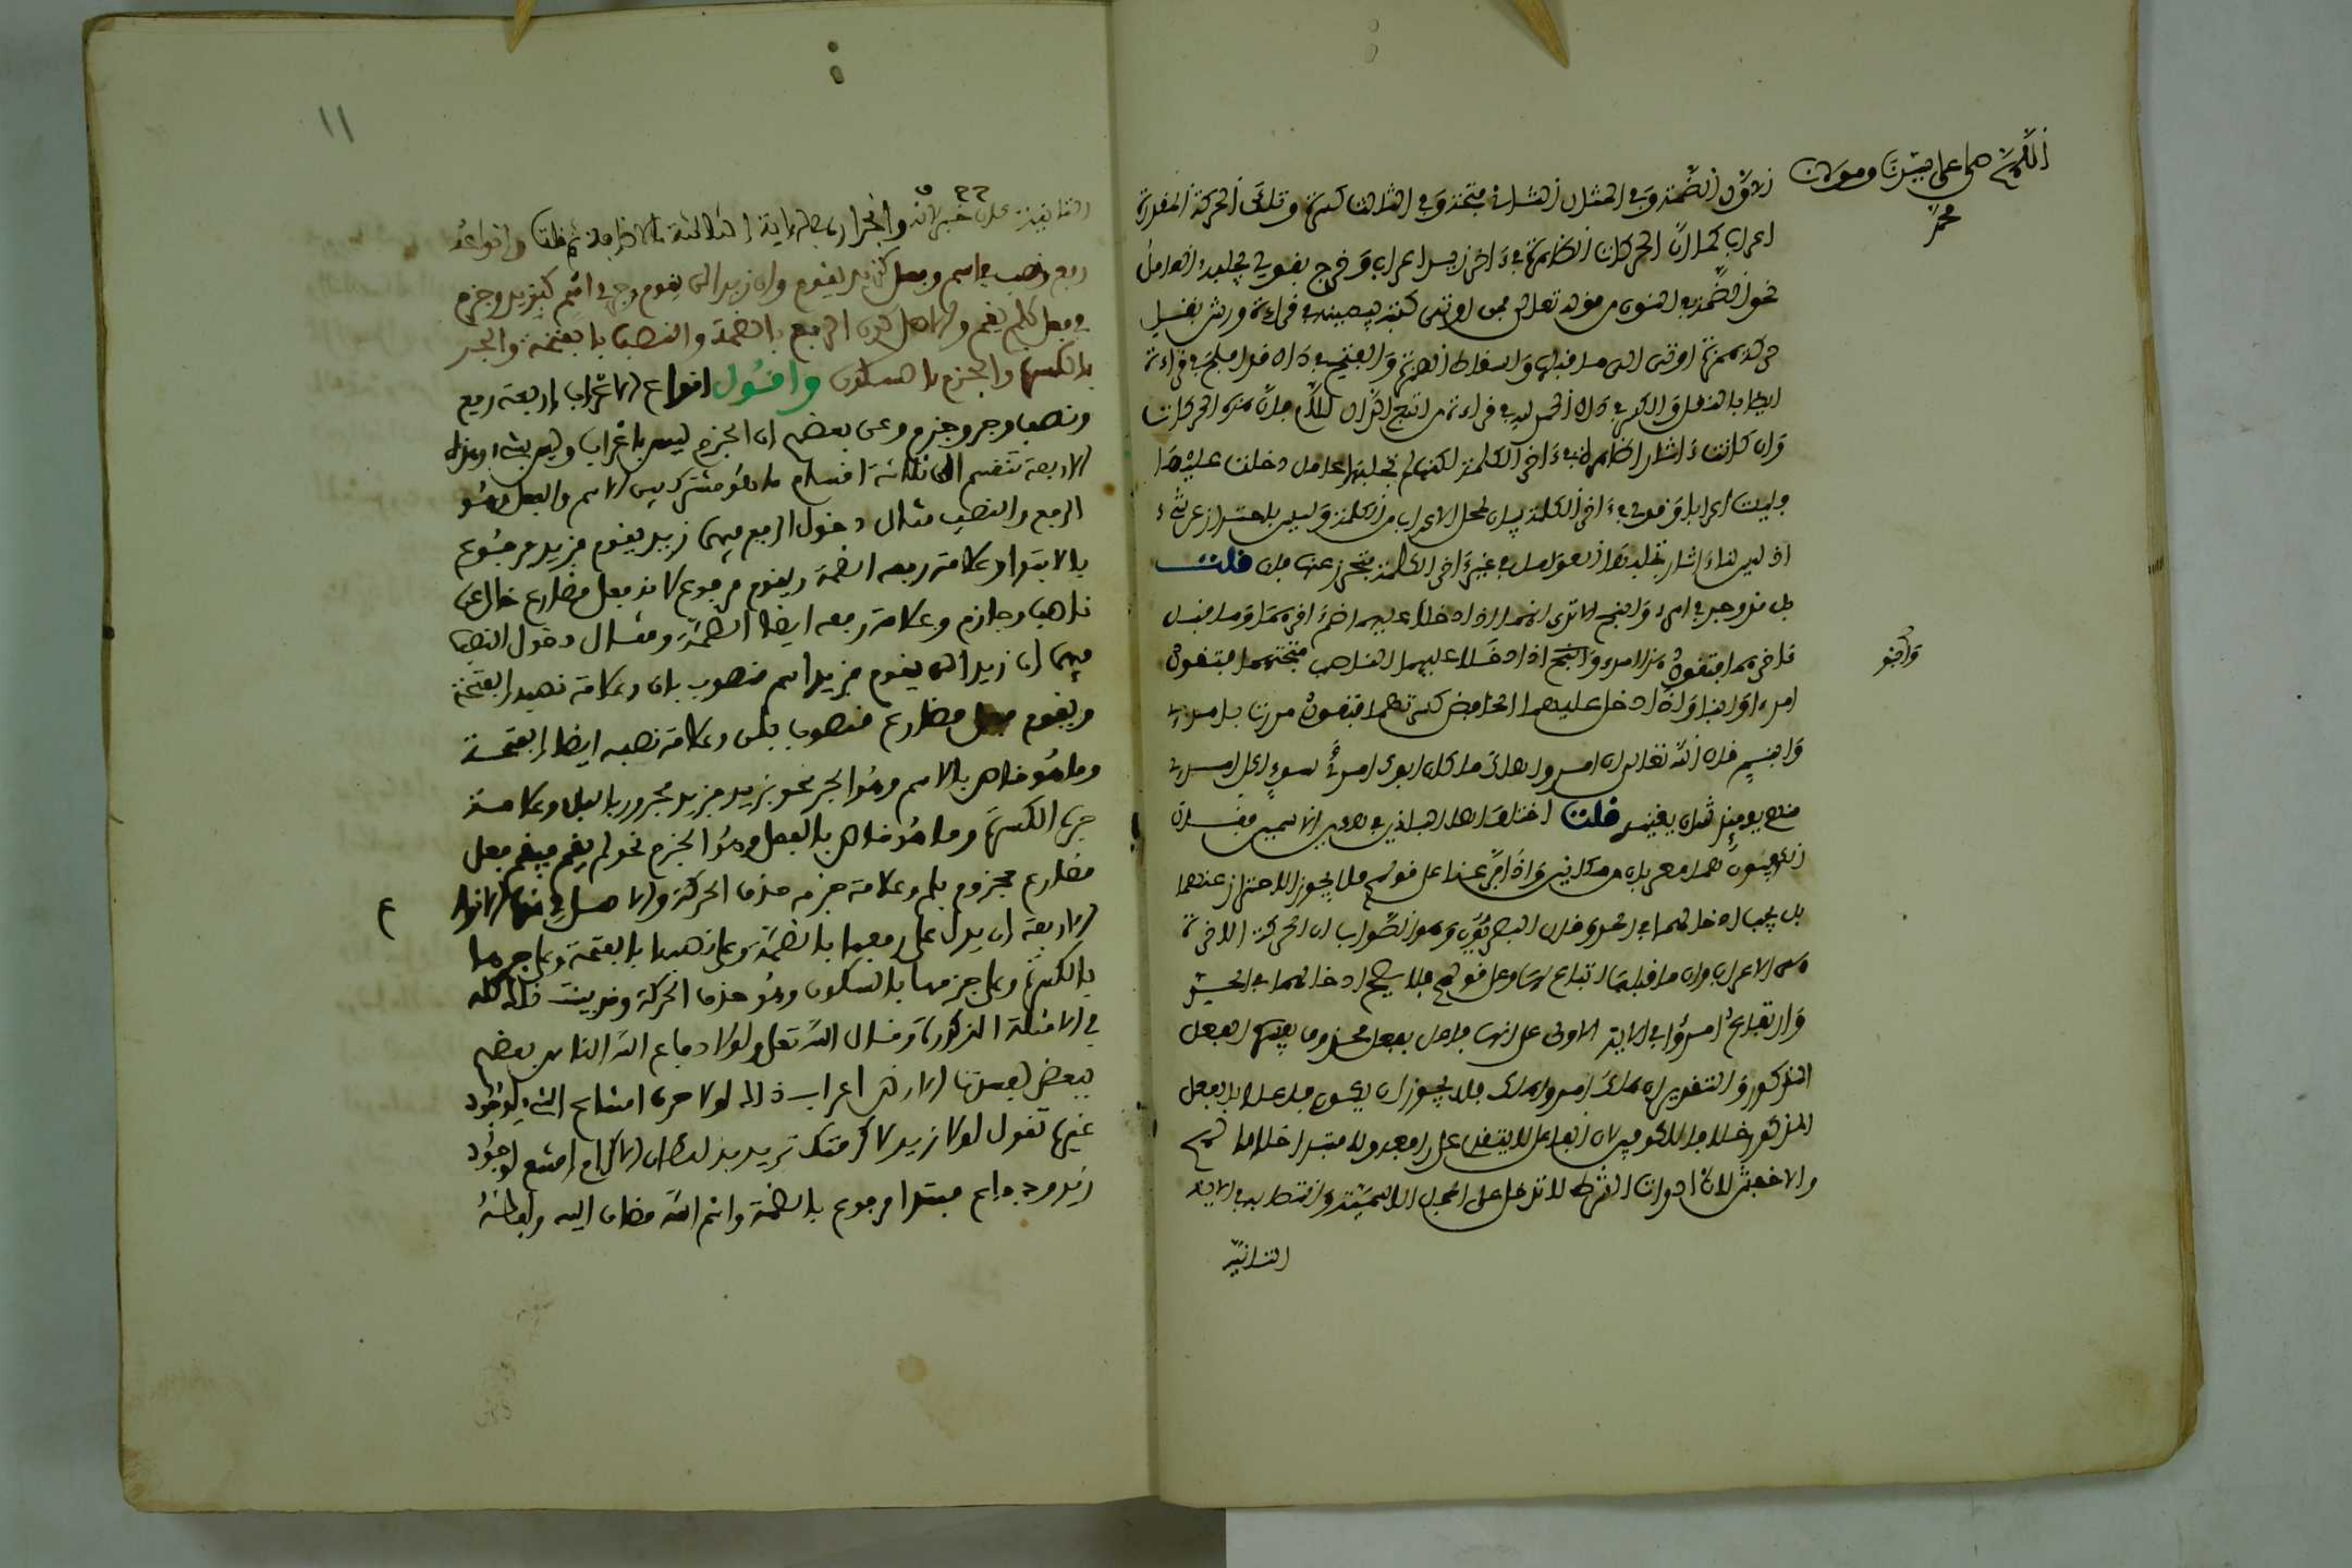 اللهم صل على سيدنا ومولانا
محمد
الاول الضمة وفي المثال الثاني فتحة وفي الثالث كسرة وتلك الحركة المقدرة
اعراب كما ان الحركات الظاهرة في ءاخر زيد اعراب وخرج بقولي يجلبه العامل
نحو الضمة في النون من قوله تعالى فمن اوتي كتبه بيمينه في قراءة ورش بنقل
حركة همزة اوتي الى ما قبلها واسقاط الهمزة والفتحة في دال قد افلح في قراءته
ايضا بالنقل والكسرة في دال الحمد لله في قراءة من اتبع الدال اللام فان هذه الحركات
وان كانت ءاثارا ظاهرة في ءاخر الكلمة لكنها لم تجلبها عوامل دخلت عليها
فليست اعرابا وقولي في ءاخر الكلمة بيان لمحل الاعراب من الكلمة وليس باحتراز عن شيء
اذ ليس لنا ءاثار تجلبها العوامل في غير ءاخر الكلمة فيحترز عنها فان قلت
بل قد وجد في امرء وابنم الا ترى انهما اذا دخل عليهما الرافع ضم ءاخرهما وما قبل
ءاخرهما فتقول هذا امرؤ وابنم اذا دخل عليهما الناصب فتحهما فتقول
وابنم
امرءا وابنما واذا دخل عليهما الخافض كسرهما فتقول مررت بامرئ
وابنم قال الله تعالى ان امرؤ هلك ما كان ابوك امرأ سوء لكل امرئ
منهم يومئذ شأن يغنيه قلت اختلف اهل البلدين في هذين الاسمين فقال
الكوفيون انهما معربان من مكانين واذا فرعنا على قولهم فلا يجوز الاحتراز عنهما
بل يجب ادخالهما في الحد وقال البصريون وهو الصواب ان الحركة الاخيرة
هي الاعراب وان ما قبلها اتباع لها وعلى قولهم فلا يصح ادخالهما في الحد
وارتفاع امرؤ في الاية الاولى على انه فاعل بفعل محذوف يفسره الفعل
المذكور والتقدير ان هلك امرؤ هلك فلا يجوز ان يكون فاعلا بالفعل
المذكور خلافا للكوفيين لان الفاعل لا يتقدم على رافعه ولا مبتدا خلافا لهم
وللاخفش لان ادوات الشرط لا تدخل على الجمل الاسمية وانتصابه في الاية
الثانية
١١
الثانية على خبر كان وانجراره في الاية الثالثة بالاضافة ثم قلت وانواعه
رفع ونصب في اسم وفعل كزيد يقوم وان زيدا لن يقوم وجر في اسم كبزيد وجزم
في فعل كلم يقم والاصل كون الرفع بالضمة والنصب بالفتحة والجر
بالكسرة والجزم بالسكون واقول انواع الاعراب اربعة رفع
ونصب وجر وجزم وعن بعضهم ان الجزم ليس باعراب وليس بشيء وهذه
الاربعة تنقسم الى ثلاثة اقسام ما هو مشترك بين الاسم والفعل وهو
الرفع والنصب مثال دخول الرفع فيهما زيد يقوم فزيد مرفوع
بالابتدا وعلامة رفعه الضمة ويقوم مرفوع لانه فعل مضارع خال عن
ناصب وجازم وعلامة رفعه ايضا الضمة ومثال دخول النصب
فيهما ان زيدا لن يقوم فزيدا اسم منصوب بان وعلامة نصبه الفتحة
ويقوم فعل مضارع منصوب بلن وعلامة نصبه ايضا الفتحة
وما هو خاص بالاسم وهو الجر نحو بزيد فزيد مجرور بالباء وعلامة
جره الكسرة وما هو خاص بالفعل وهو الجزم نحو لم يقم فيقم فعل
مضارع مجزوم بلم وعلامة جزمه حذف الحركة والاصل في هذه الانواع
الاربعة ان يدل على رفعها بالضمة وعلى نصبها بالفتحة وعلى جرها
بالكسرة وعلى جزمها بالسكون وهو حذف الحركة وقد بينت ذلك كله
في الامثلة المذكورة وقال الله تعلى ولولا دفاع الله الناس بعضهم
ببعض لفسدت الارض اعراب ذلك لولا حرف امتناع الشيء لوجود
غيره تقول لولا زيد لاكرمتك تريد بذلك ان الاكرام امتنع لوجود
زيد ودفاع مبتدا مرفوع بالضمة واسم الله مضاف اليه ولفظه